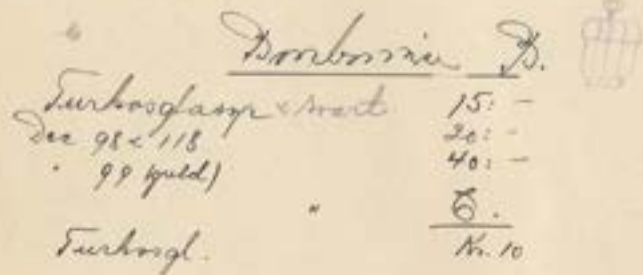 Bonbonnier B.
Turkosglasyr & svart 15: -
Dec 98 & 118 20: -
" 99 (guld) 40: -
" C.
Turkosgl. Kr. 10